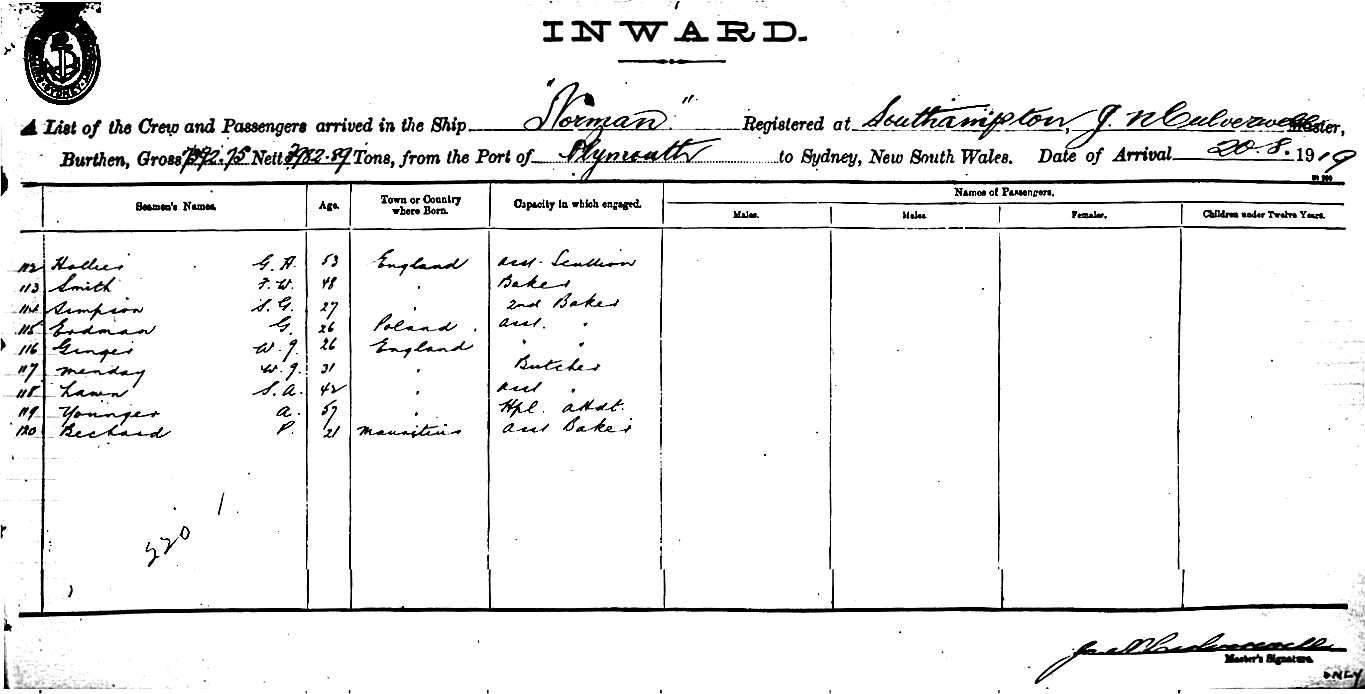 INWARD.
A List of the Crew and Passengers arrived in the Ship "Norman" Registered at Southampton, J. N Culverwell Master,
Burthen, Gross 7392.75 Nett 3982.89 Tons, from the Port of Plymouth to Sydney, New South Wales. Date of Arrival 20.8.1919
Seamen's Names. Age. Town or Country where Born. Capacity in which engaged. Names of Passengers.
Males. Males. Females. Children under Twelve Years.
112 Hollies G. A. 53 England asst. Scullion
113 Smith F. W. 48 " Baker
114 Simpson S. G. 27 " 2nd Baker
115 Erdman G. 26 Poland asst. "
116 Ginger W. J. 26 England " "
117 Menday W. J. 31 " Butcher
118 Lawn S. A. 42 " asst "
119 Younger A. 57 " Hpl. attdt.
120 Bechard P. 21 Mauritius asst Baker
1
220
Master's Signature.
ONLY